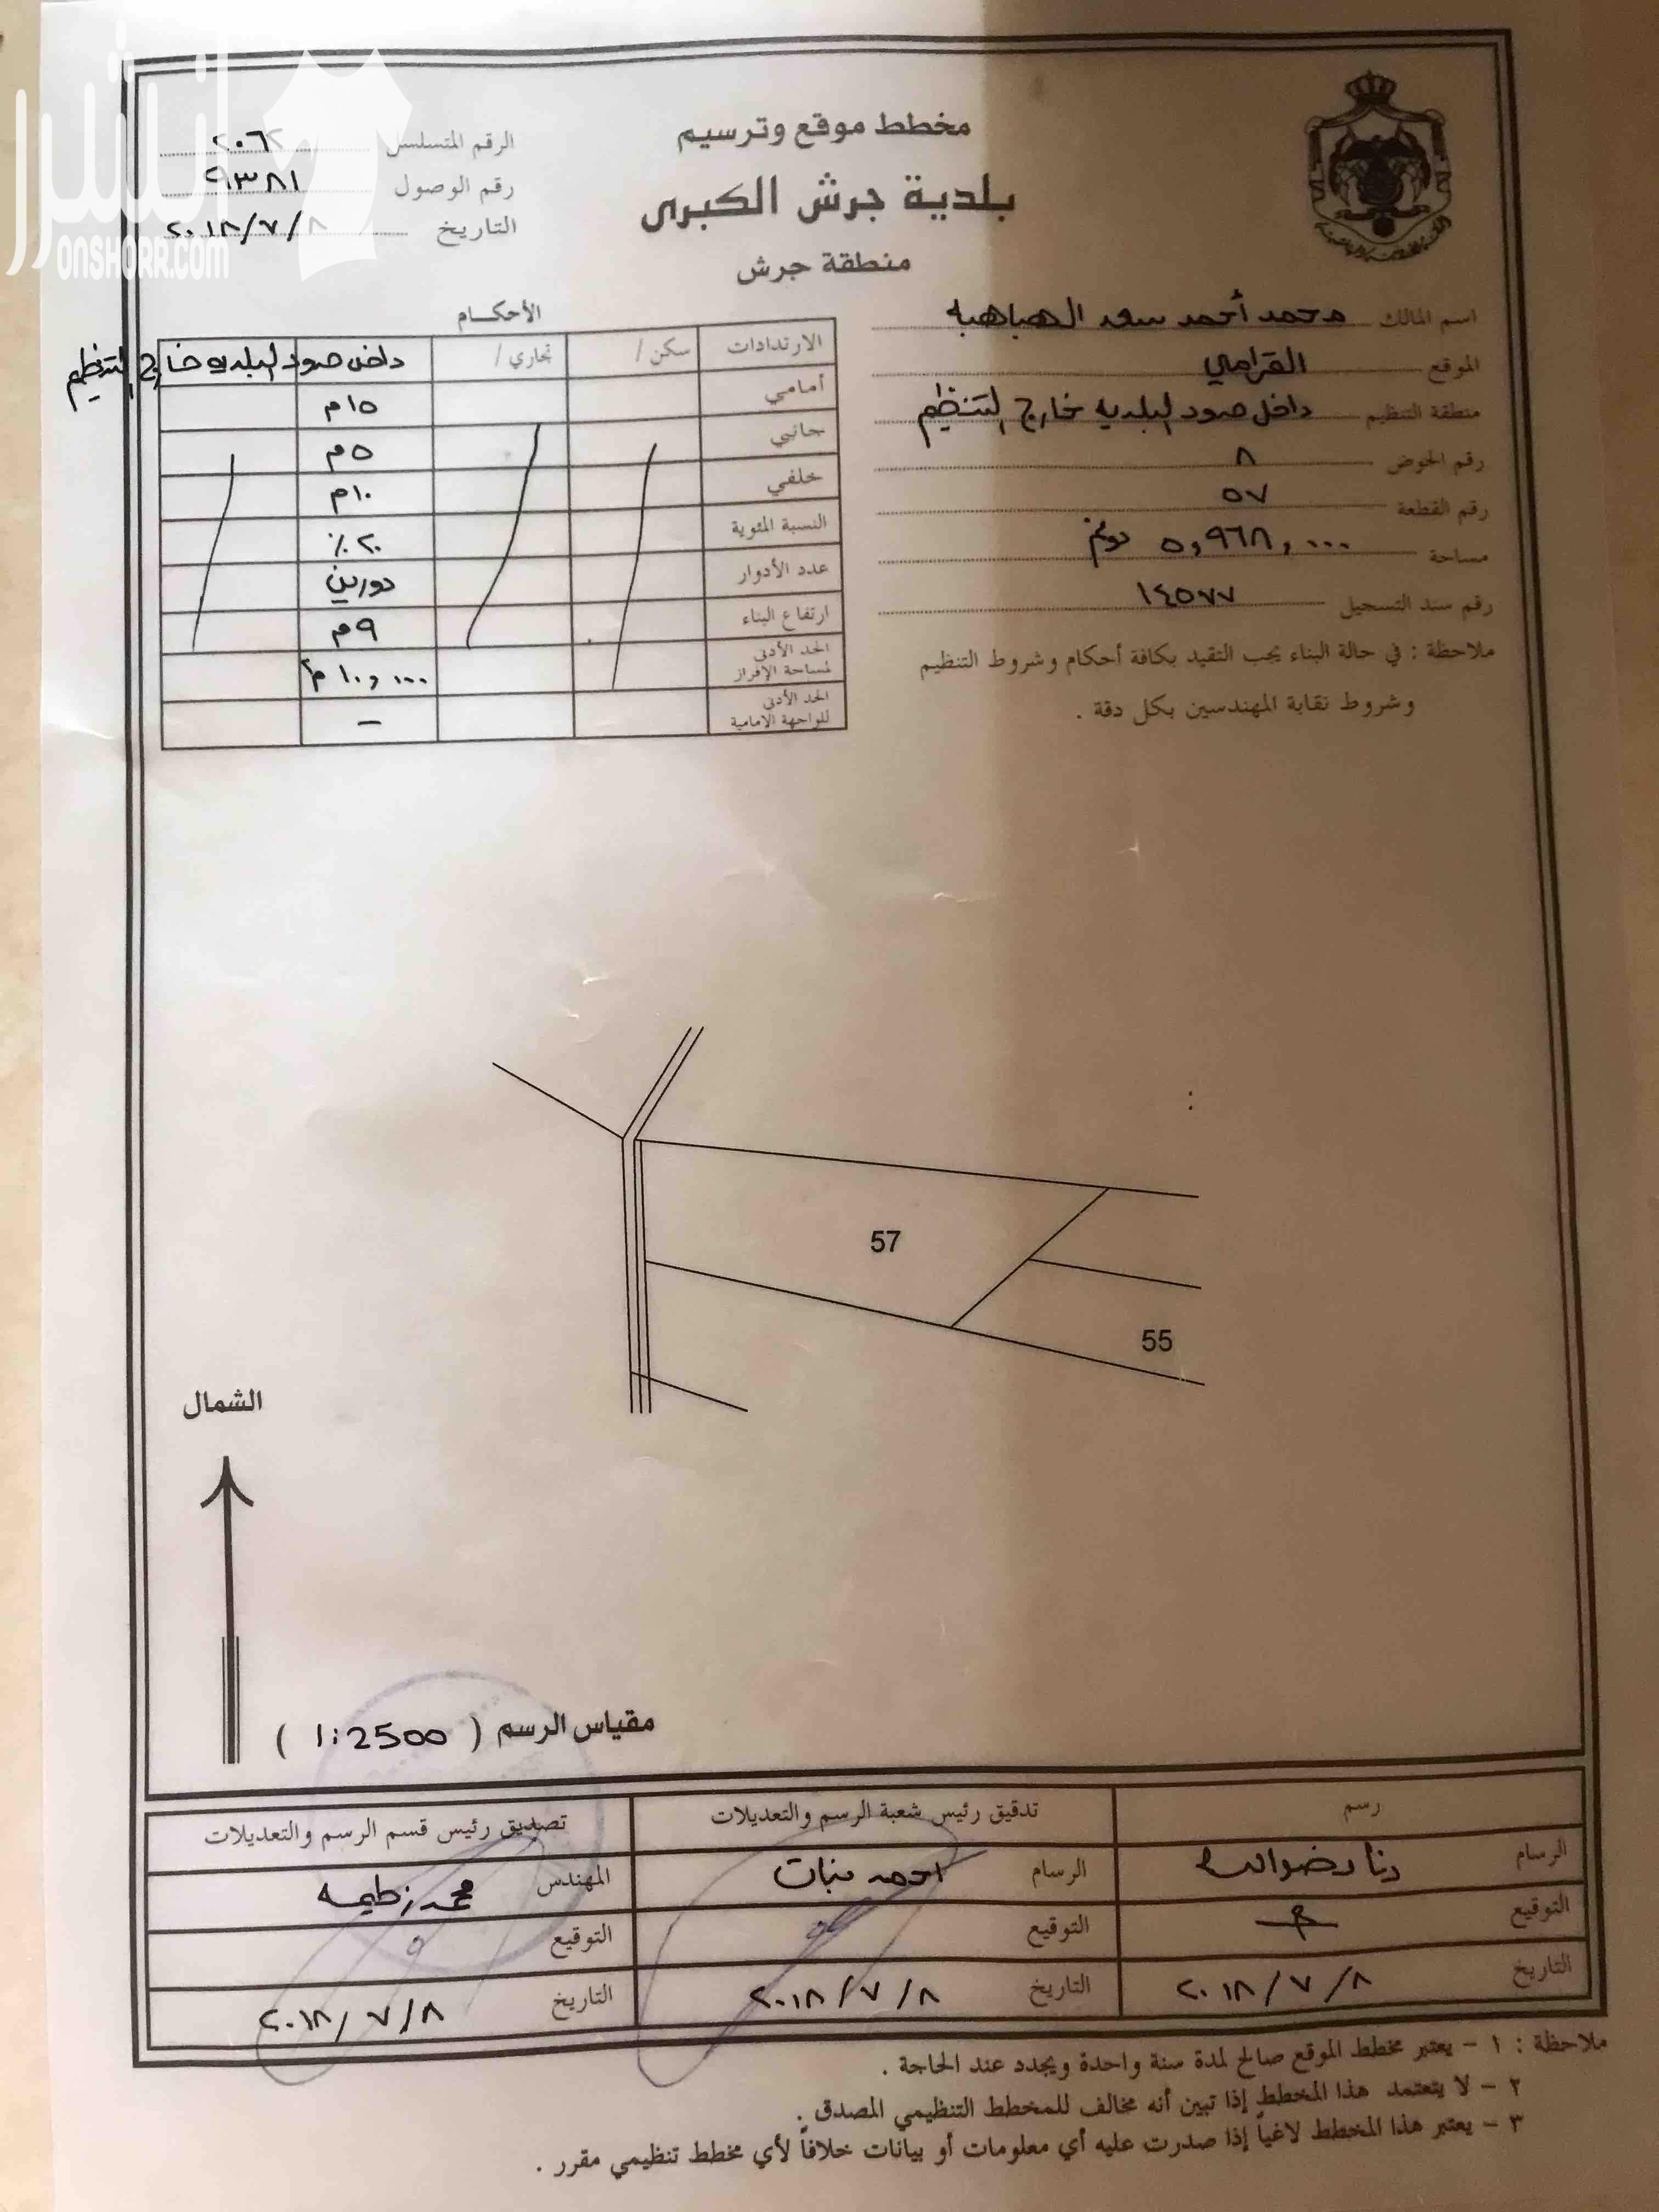 انشر
ONSHORR.com
مخطط موقع وترسيم
بلدية جرش الكبرى
منطقة جرش
الرقم المتسلسل
رقم الوصول ٩٣٨١
التاريخ ٢٠١٨/٧/٨
اسم المالك محمد أحمد سعد الهباهبه
الموقع القرامي
منطقة التنظيم داخل حدود البلديه خارج التنظيم
رقم الحوض ٨
رقم القطعة ٥٧
مساحة ٥,٩٦٨,٠٠٠ دونم
رقم سند التسجيل ١٤٥٧٧
ملاحظة : في حالة البناء يجب التقيد بكافة أحكام وشروط التنظيم
وشروط نقابة المهندسين بكل دقة .
الأحكام
الارتدادات سكن / تجاري / داخل حدود البلديه خارج التنظيم
أمامي ١٥م
جانبي ٥م
خلفي ١٠م
النسبة المئوية ٢٠٪
عدد الأدوار دورين
ارتفاع البناء ٩م
الحد الأدنى لمساحة الإفراز ١٠,٠٠٠ م٢
الحد الأدنى للواجهة الامامية –
57
55
الشمال
مقياس الرسم ( 1:2500 )
رسم
الرسام
التوقيع
التاريخ ٢٠١٨/٧/٨
تدقيق رئيس شعبة الرسم والتعديلات
الرسام احمد
التوقيع
التاريخ ٢٠١٨/٧/٨
تصديق رئيس قسم الرسم والتعديلات
المهندس محمد
التوقيع
التاريخ ٢٠١٨/٧/٨
ملاحظة : ١ – يعتبر مخطط الموقع صالح لمدة سنة واحدة ويجدد عند الحاجة .
٢ – لا يتعتمد هذا المخطط إذا تبين أنه مخالف للمخطط التنظيمي المصدق .
٣ – يعتبر هذا المخطط لاغياً إذا صدرت عليه أي معلومات أو بيانات خلافاً لأي مخطط تنظيمي مقرر .